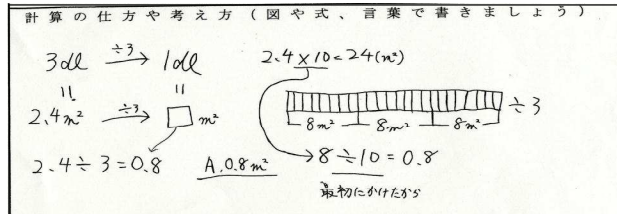 計算の仕方や考え方（図や式、言葉で書きましょう）
3dl ÷3→ 1dl
=  =
2.4m² ÷3→ □ m²
2.4÷3=0.8 A.0.8m²
2.4×10=24(m²)
÷3
8m² 8m² 8m²
→8÷10=0.8
最初にかけたから